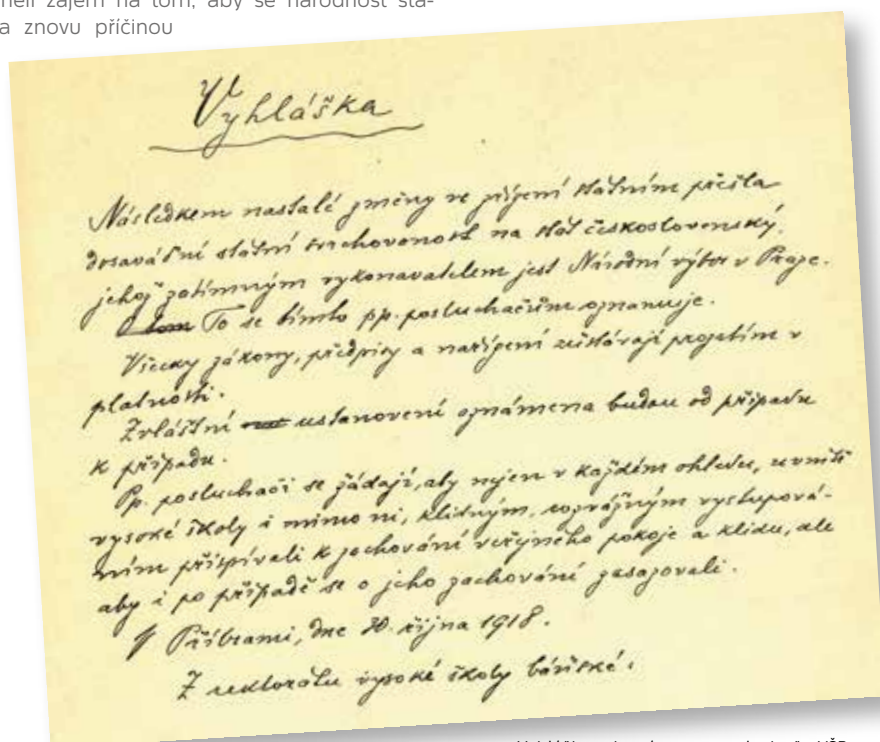 měli zájem na tom, aby se národnost sta-
a znovu příčinou
Vyhláška
Následkem nastalé změny ve zřízení státním přešla
dosavádní státní svrchovanost na stát československý,
jehož zatímným vykonavatelem jest Národní výbor v Praze.
O tom To se tímto pp. posluchačům oznamuje.
Všecky zákony, předpisy a nařízení zůstávají prozatím v
platnosti.
Zvláštní ustanovení oznámena budou od případu
k případu.
Pp. posluchači se žádají, aby nejen v každém ohledu, uvnitř
vysoké školy i mimo ni, klidným, rozvážným vystupová-
ním přispívali k zachování veřejného pokoje a klidu, ale
aby i po případě se o jeho zachování zasazovali.
V Příbrami, dne 30. října 1918.
Z rektorátu vysoké školy báňské.